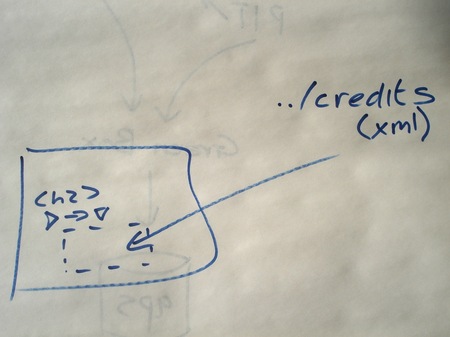 ../credits
(xml)
<h2>